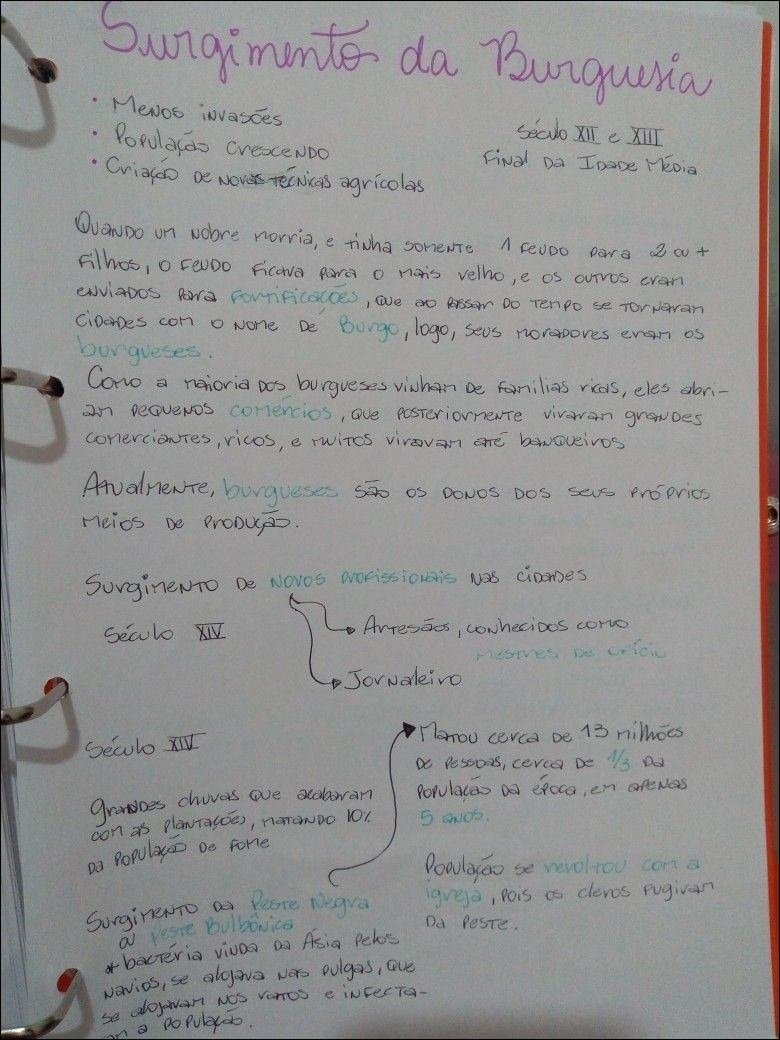 Surgimento da Burguesia
• Menos invasões
• População crescendo
• Criação de novas técnicas agrícolas
Século XII e XIII
Final da Idade Média
Quando um nobre morria, e tinha somente 1 feudo para 2 ou +
filhos, o feudo ficava para o mais velho, e os outros eram
enviados para fortificações, que ao passar do tempo se tornaram
cidades com o nome de Burgo, logo, seus moradores eram os
burgueses.
Como a maioria dos burgueses vinham de famílias ricas, eles abri-
am pequenos comércios, que posteriormente viraram grandes
comerciantes, ricos, e muitos viravam até banqueiros
Atualmente, burgueses são os donos dos seus próprios
meios de produção.
Surgimento de novos profissionais nas cidades
Século XIV
Artesãos, conhecidos como
mestres de ofício
Jornaleiro
Século XIV
Grandes chuvas que acabaram
com as plantações, matando 10%
da população de fome
Surgimento da Peste Negra
ou Peste Bulbônica
* bactéria vinda da Ásia pelos
navios, se alojava nas pulgas, que
se alojavam nos ratos e infecta-
am a população.
Matou cerca de 13 milhões
de pessoas, cerca de 1/3 da
população da época, em apenas
5 anos.
População se revoltou com a
igreja, pois os cleros fugiram
da peste.